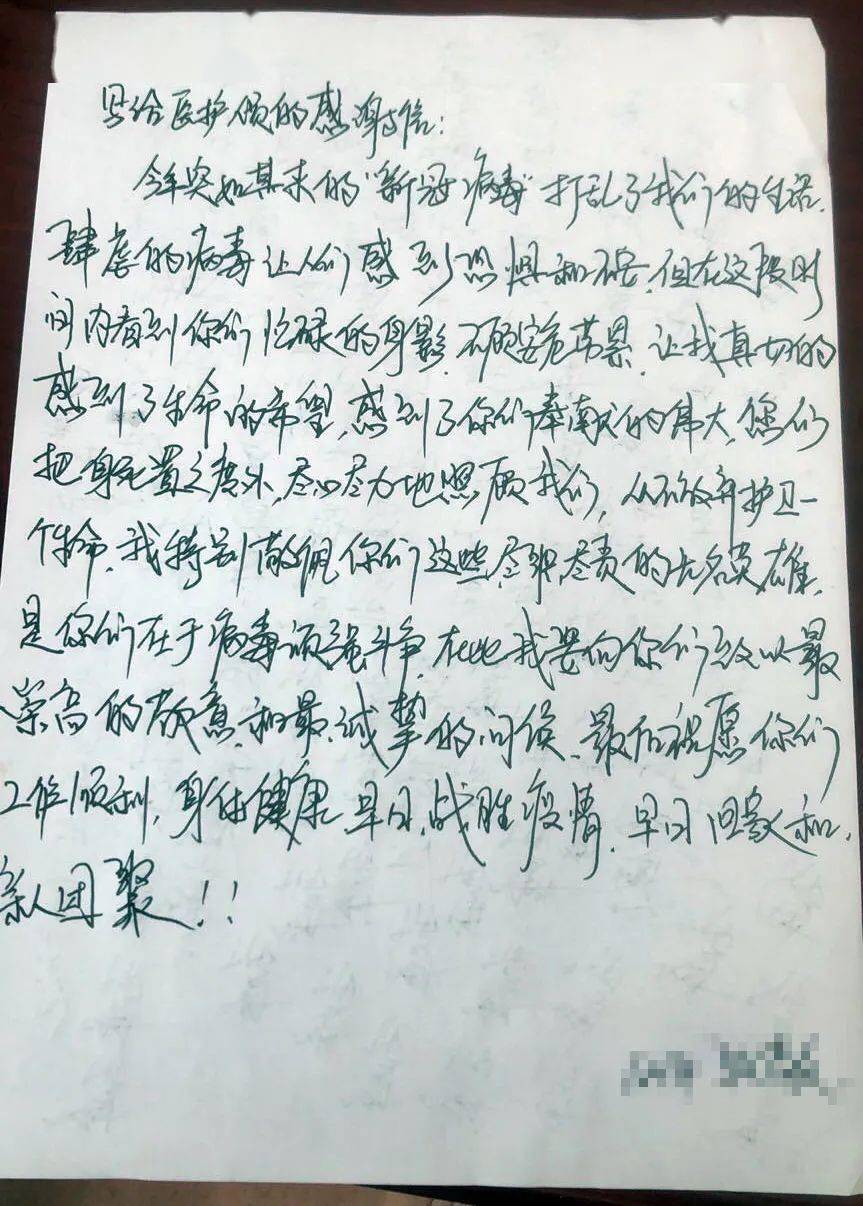 写给医护人员的感谢信:
今年突如其来的"新冠病毒"打乱了我们的生活.
肆虐的病毒让人们感到恐惧和不安,但在这段时
间内看到你们忙碌的身影,不顾安危劳累,让我真切的
感到了生命的希望,感到了你们奉献的伟大,您们
把身死置之度外,尽心尽力地照顾我们,从不放弃护卫一
个生命,我特别敬佩你们这些尽职尽责的无名英雄,
是你们在于病毒顽强斗争,在此我要向你们致以最
崇高的敬意,和最诚挚的问侯、最后祝愿你们
工作顺利,身体健康,早日战胜疫情,早日回家和,
亲人团聚!!